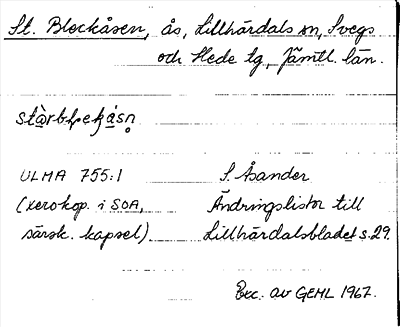 St. Blockåsen, ås, Lillhärdals sn, Svegs
och Hede tg, Jämtl. län.
ULMA 755:1 S. Åsander
(xerokop. i SOA, Ändringslistor till
särsk. kapsel) Lillhärdalsbladet s. 29.
Exc. av GEHL 1967.